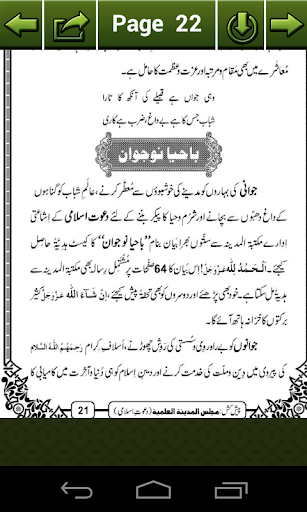 Page 22
مُعاشَرے میں بھی مقام و مرتبہ اور عزت و عظمت کا حامل ہے۔
وہی جواں ہے قبیلے کی آنکھ کا تارا
شباب جس کا ہے بے داغ، ضرب ہے کاری
باحیا نوجوان
جوانی کی بہاروں کو مدینے کی خوشبوؤں سے مُعطّر کرنے، عالَمِ شباب کو گناہوں
کے داغ دھبّوں سے بچانے اور شرم و حیا کا پیکر بننے کے لئے دعوتِ اسلامی کے اشاعتی
ادارے مکتبۃ المدینہ سے سنّتوں بھرا بیان بنام ”باحیا نوجوان“ کا کیسٹ ہدیّۃً حاصل
کیجئے۔ اَلْحَمْدُ لِلّٰہ عَزَّوَجَلَّ! اس بیان کا 64 صفحات پر مُشتَمِل رسالہ بھی مکتبۃ المدینہ سے
ہدیۃً مل سکتا ہے۔ خود بھی پڑھئے اور دوسروں کو بھی تحفۃً پیش کیجئے، اِنْ شَآءَ اللّٰه عَزَّوَجَلَّ کثیر
برکتوں کا خزانہ ہاتھ آئے گا۔
جوانوں کو بے راہ روی و سُستی کی رَوِش چھوڑنے، اَسلافِ کرام رَحِمَهُمُ اللّٰهُ السَّلَام
کی پیروی میں دین و ملّت کی خدمت کرنے اور دینِ اسلام کو ہی دُنیا و آخرت میں کامیابی کا
پیش کش: مجلس المدينة العلمية (دعوتِ اسلامی)
21